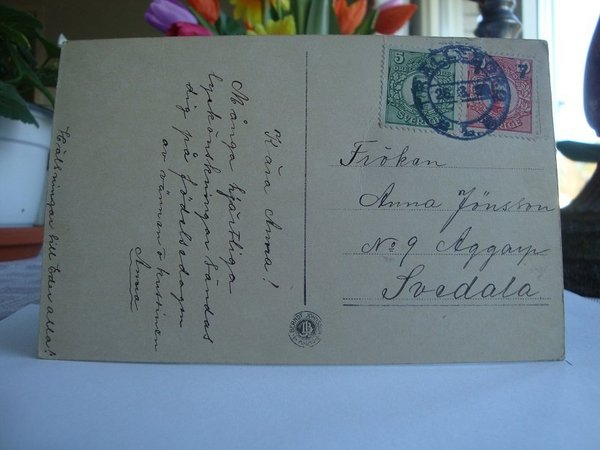 Kära Anna!
Många hjärtliga
lyckönskningar sändas
dig på födelsedagen
av vännen o kusinen
Anna
Hälsningar till Eder alla!
5
7
Fröken
Anna Jönsson
No 9 Aggarp
Svedala